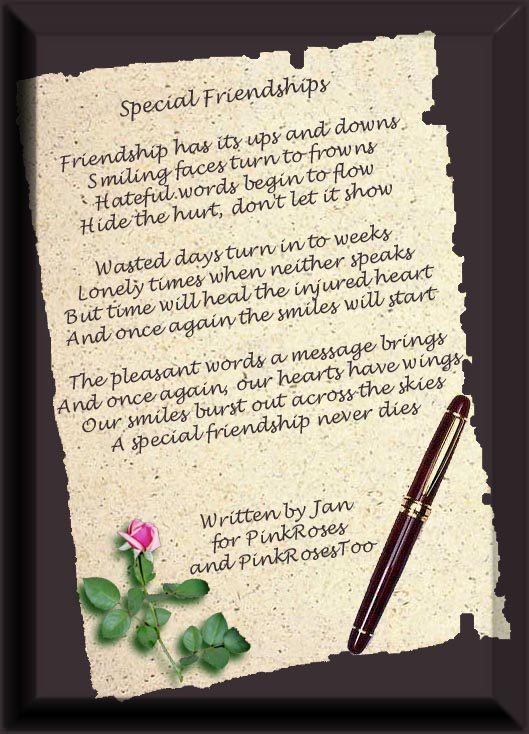 Special Friendships
Friendship has its ups and downs
Smiling faces turn to frowns
Hateful words begin to flow
Hide the hurt, don't let it show
Wasted days turn in to weeks
Lonely times when neither speaks
But time will heal the injured heart
And once again the smiles will start
The pleasant words a message brings
And once again, our hearts have wings
Our smiles burst out across the skies
A special friendship never dies
Written by Jan
for PinkRoses
and PinkRosesToo